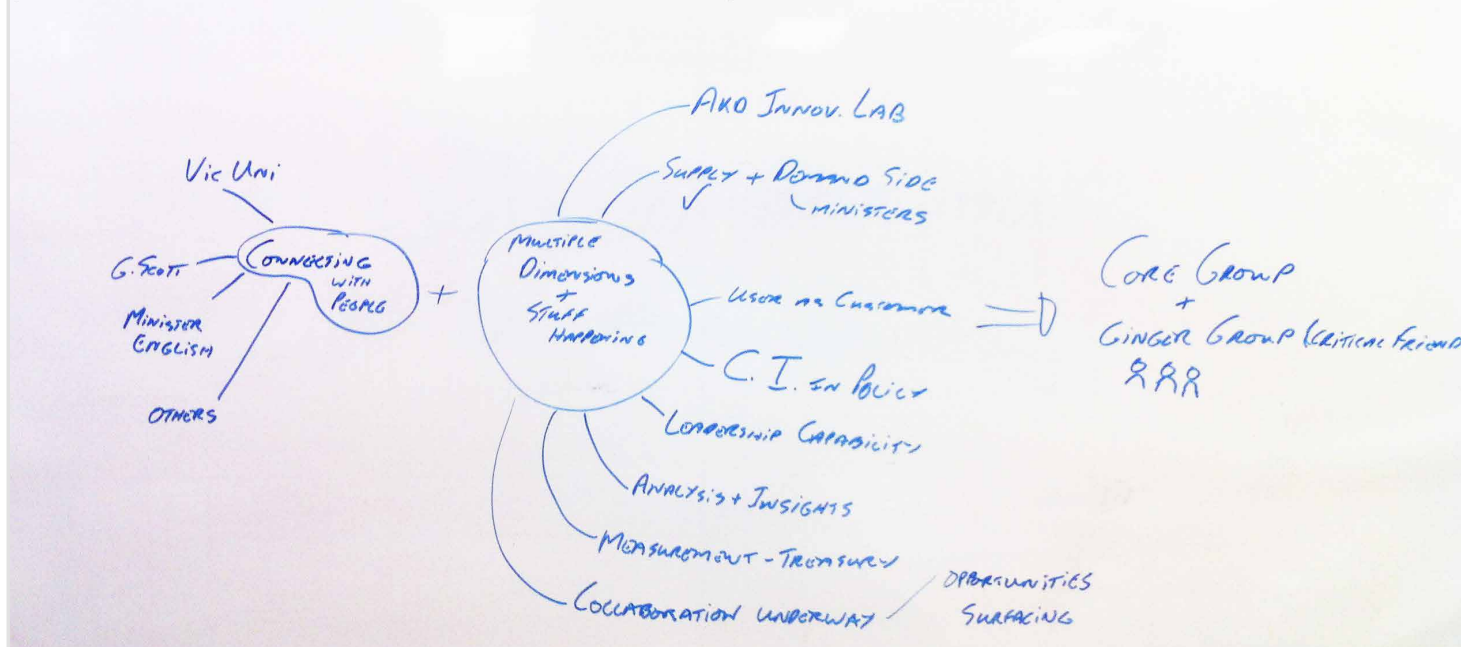 Vic Uni
G. Scott
MINISTER
ENGLISH
OTHERS
CONNECTING
WITH
PEOPLE
+
MULTIPLE
DIMENSIONS
+
STUFF
HAPPENING
AKO INNOV. LAB
SUPPLY + DEMAND SIDE
MINISTERS
USER AS CUSTOMER
C. I. IN POLICY
LEADERSHIP CAPABILITY
ANALYSIS + INSIGHTS
MEASUREMENT - TREASURY
COLLABORATION UNDERWAY
OPPORTUNITIES
SURFACING
CORE GROUP
+
GINGER GROUP (CRITICAL FRIEND